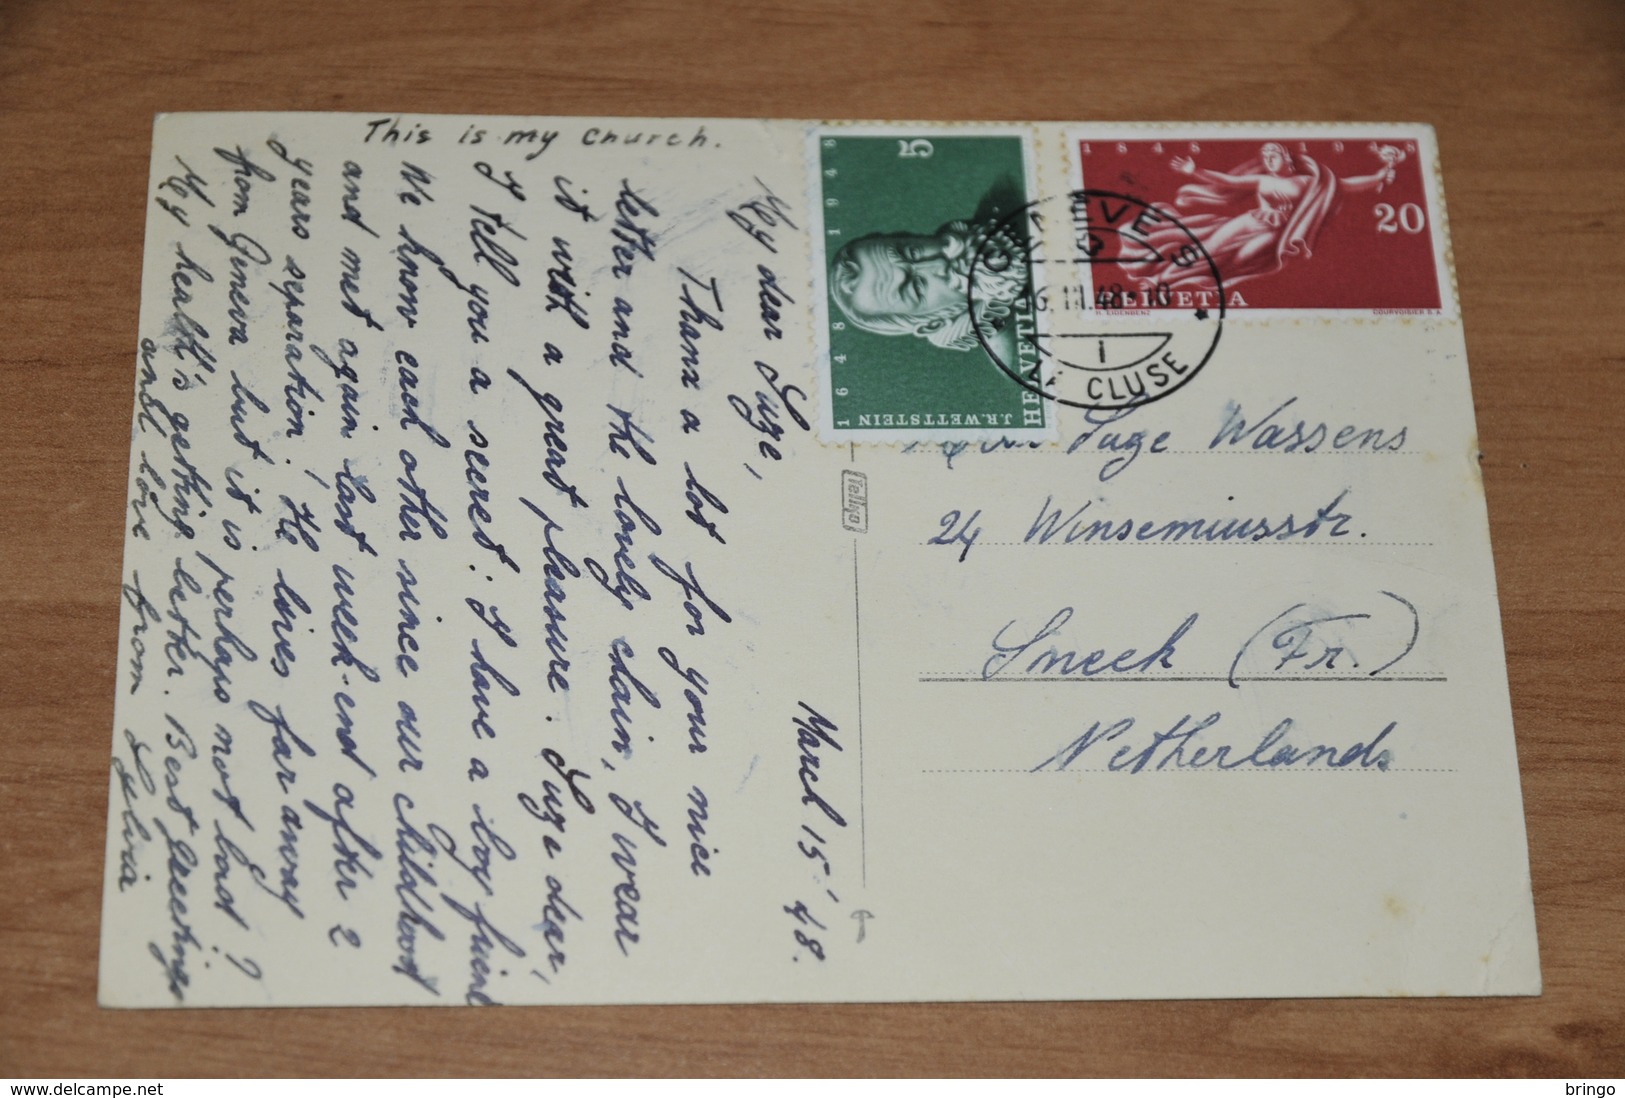 This is my Church.
March 15' 48.
My dear Suze,
Thanx a lot for your nice
letter and the lovely chain, I wear
it with a great pleasure. Suze dear,
I tell you a secret: I have a boy friend
We know each other since our childhood
and met again last week-end after 2
years separation! He lives far away
from Geneva but it is perhaps not bad?
My health's getting better. Best greetings
and love from Sylvia
Suze Wassens
24 Winsemiusstr.
Sneek (Fr.)
Netherlands
Tellko
1648 1948
5
J.R.WETTSTEIN
HELVETIA
1848 1948
20
HELVETIA
H. EIGENBENZ
COURVOISIER S.A.
GENÈVE 8
16.III.48-10
1
LA CLUSE
delcampe.net
bringo